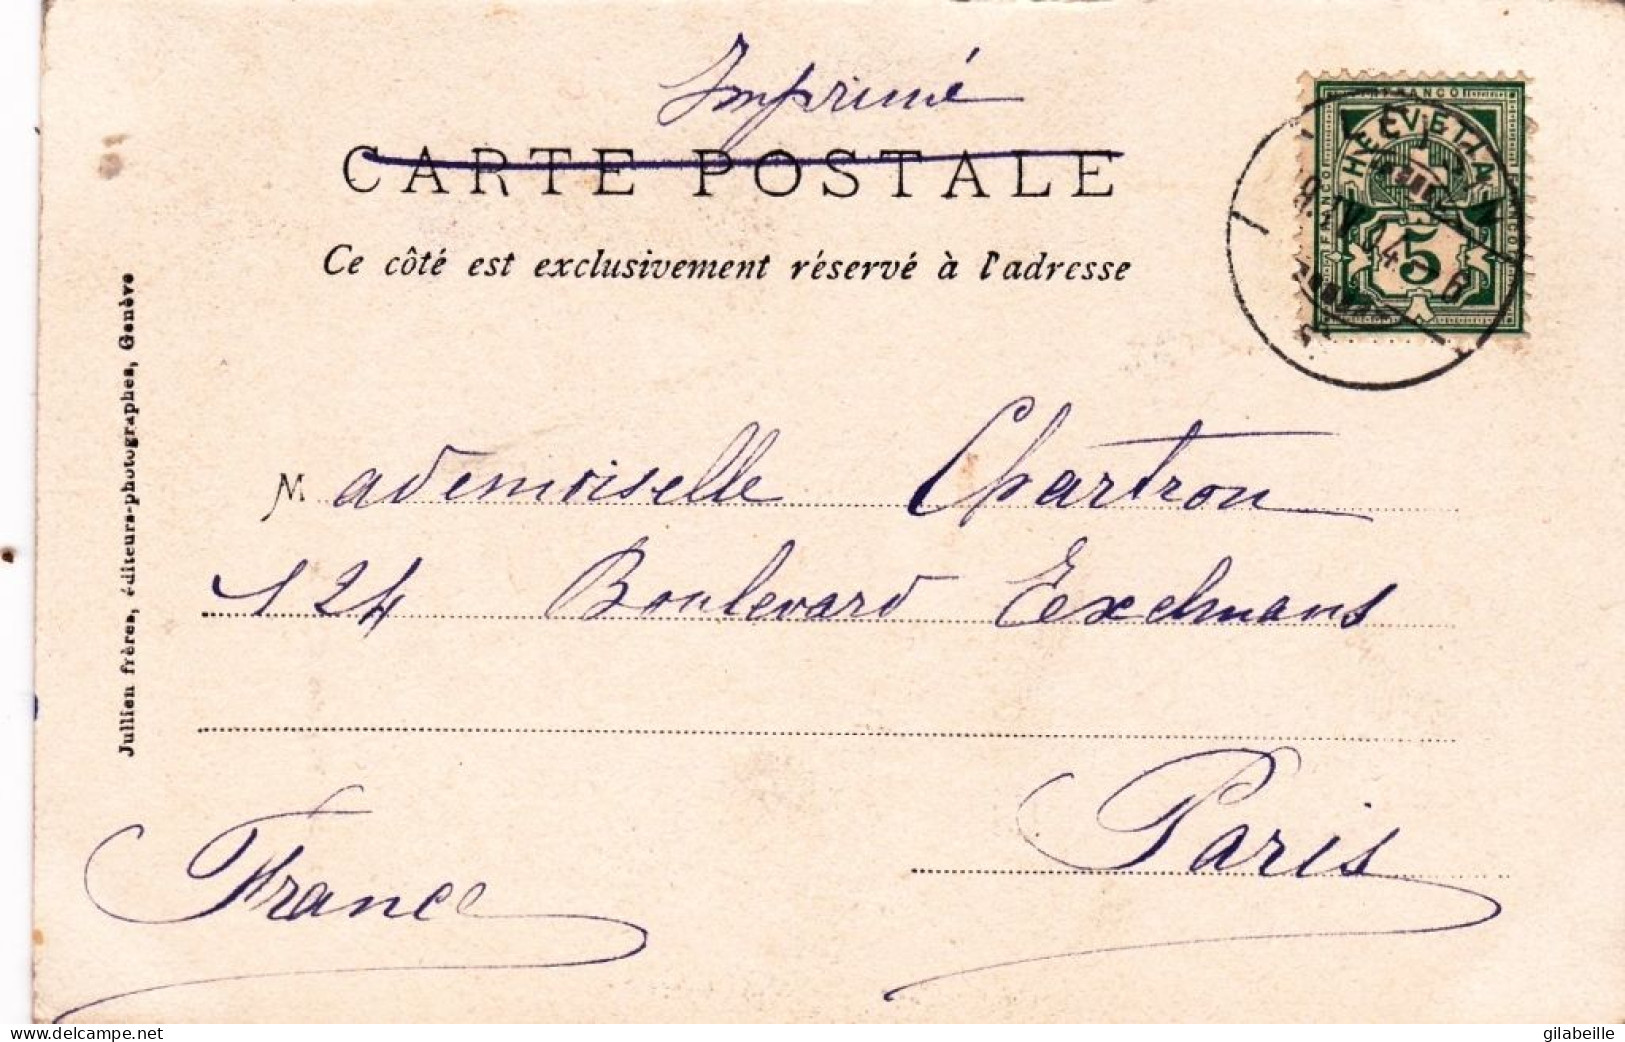 Imprimé
CARTE POSTALE
Ce côté est exclusivement réservé à l'adresse
FRANCO
HELVETIA
FRANCO
FRANCO
5
Jullien frères, éditeurs-photographes, Genève
Mademoiselle Chartron
124 Boulevard Exelmans
Paris
France
www.delcampe.net
gilabeille